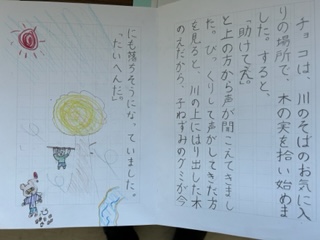 チョコは、川のそばのお気に入
りの場所で、木の実を拾い始めま
した。すると、
「助けてえ」
と上の方から声が聞こえてきまし
た。びっくりして声がしてきた方
を見ると、川の上にはり出した木
のえだから、子ねずみのグミが今
にも落ちそうになっていました。
「たいへんだ。」